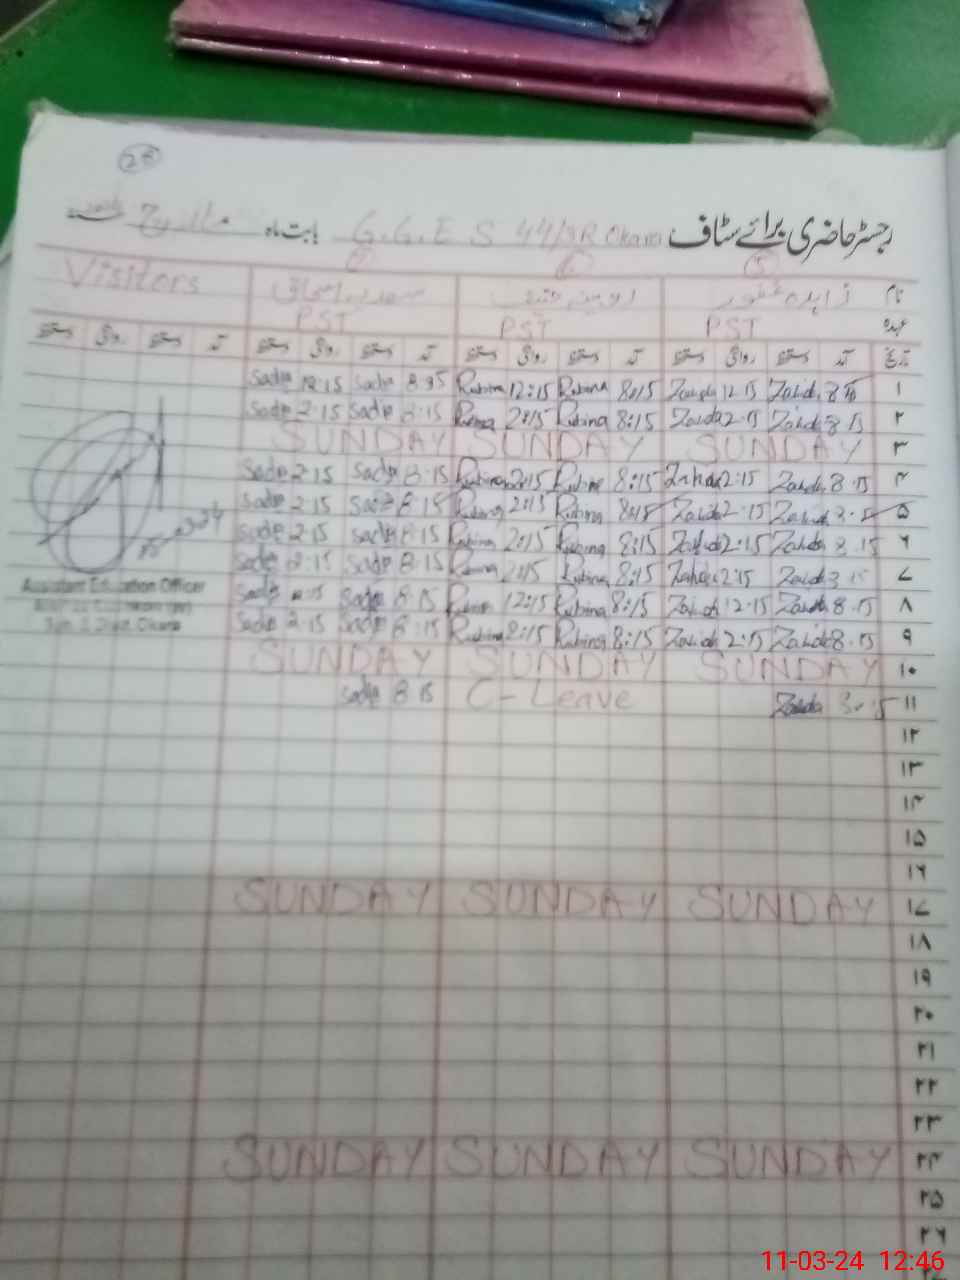 25
رجسٹر حاضری برائے سٹاف G.G.E.S 44/3R Okara بابت ماہ مارچ
5 6 7
نام زاہدہ غفور روبینہ Visitors
عہدہ PST PST PST
تاریخ آمد دستخط روانگی دستخط آمد دستخط روانگی دستخط آمد دستخط روانگی دستخط آمد دستخط روانگی دستخط
۱ 8:15 Zahida 12:15 Zahida 8:15 Rubina 12:15 Rubina 8:15 Sadia 12:15 Sadia
۲ 8:15 Zahida 2:15 Zahida 8:15 Rubina 2:15 Rubina 8:15 Sadia 2:15 Sadia
۳ SUNDAY SUNDAY SUNDAY
۴ 8:15 Zahida 2:15 Zahida 8:15 Rubina 2:15 Rubina 8:15 Sadia 2:15 Sadia
۵ 8:15 Zahida 2:15 Zahida 8:15 Rubina 2:15 Rubina 8:15 Sadia 2:15 Sadia
۶ 8:15 Zahida 2:15 Zahida 8:15 Rubina 2:15 Rubina 8:15 Sadia 2:15 Sadia
۷ 8:15 Zahida 2:15 Zahida 8:15 Rubina 2:15 Rubina 8:15 Sadia 2:15 Sadia
۸ 8:15 Zahida 12:15 Zahida 8:15 Rubina 12:15 Rubina 8:15 Sadia 12:15 Sadia
۹ 8:15 Zahida 2:15 Zahida 8:15 Rubina 2:15 Rubina 8:15 Sadia 2:15 Sadia
۱۰ SUNDAY SUNDAY SUNDAY
۱۱ 8:15 Zahida C-Leave 8:15 Sadia
Assistant Education Officer
Okara
۱۲
۱۳
۱۴
۱۵
۱۶
۱۷ SUNDAY SUNDAY SUNDAY
۱۸
۱۹
۲۰
۲۱
۲۲
۲۳
۲۴ SUNDAY SUNDAY SUNDAY
۲۵
۲۶
11-03-24 12:46